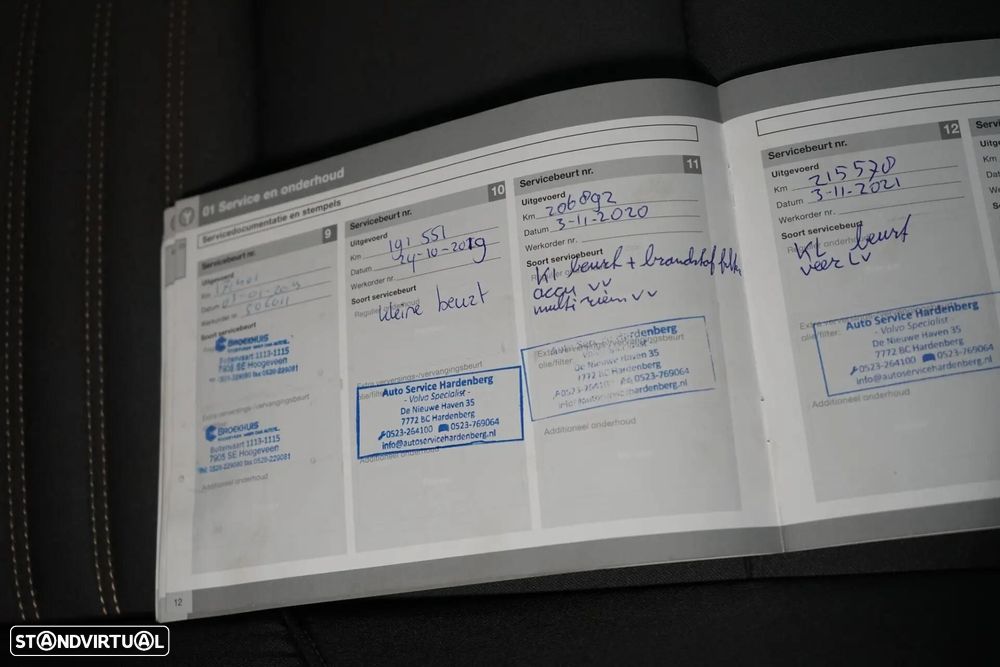 01 Service en onderhoud
Servicedocumentatie en stempels
Servicebeurt nr. 9
Uitgevoerd
Km
Datum
Werkorder nr.
Soort servicebeurt
BROEKHUIS
Buitenvaart 1113-1115
7905 SE Hoogeveen
Extra verversings-/vervangingsbeurt
BROEKHUIS
Buitenvaart 1113-1115
7905 SE Hoogeveen
Tel: 0528-229080 fax 0528-229081
Additioneel onderhoud
Servicebeurt nr. 10
Uitgevoerd
Km 191 551
Datum 24-10-2019
Werkorder nr.
Soort servicebeurt
Regulier onderhoud
kleine beurt
Extra verversings-/vervangingsbeurt
olie/filter:
Auto Service Hardenberg
- Volvo Specialist -
De Nieuwe Haven 35
7772 BC Hardenberg
0523-264100 0523-769064
info@autoservicehardenberg.nl
Additioneel onderhoud
Servicebeurt nr. 11
Uitgevoerd
Km 206892
Datum 3-11-2020
Werkorder nr.
Soort servicebeurt
Regulier onderhoud
KL beurt + brandstof filter
accu vv
multiriem vv
Extra verversings-/vervangingsbeurt
olie/filter:
Auto Service Hardenberg
- Volvo Specialist -
De Nieuwe Haven 35
7772 BC Hardenberg
0523-264100 0523-769064
info@autoservicehardenberg.nl
Additioneel onderhoud
Servicebeurt nr. 12
Uitgevoerd
Km 215578
Datum 3-11-2021
Werkorder nr.
Soort servicebeurt
Regulier onderhoud
KL beurt
veer LV
Extra
olie/filter:
Auto Service Hardenberg
- Volvo Specialist -
De Nieuwe Haven 35
7772 BC Hardenberg
0523-264100 0523-769064
info@autoservicehardenberg.nl
Additioneel onderhoud
Uitge
Km
Datum
12
STANDVIRTUAL